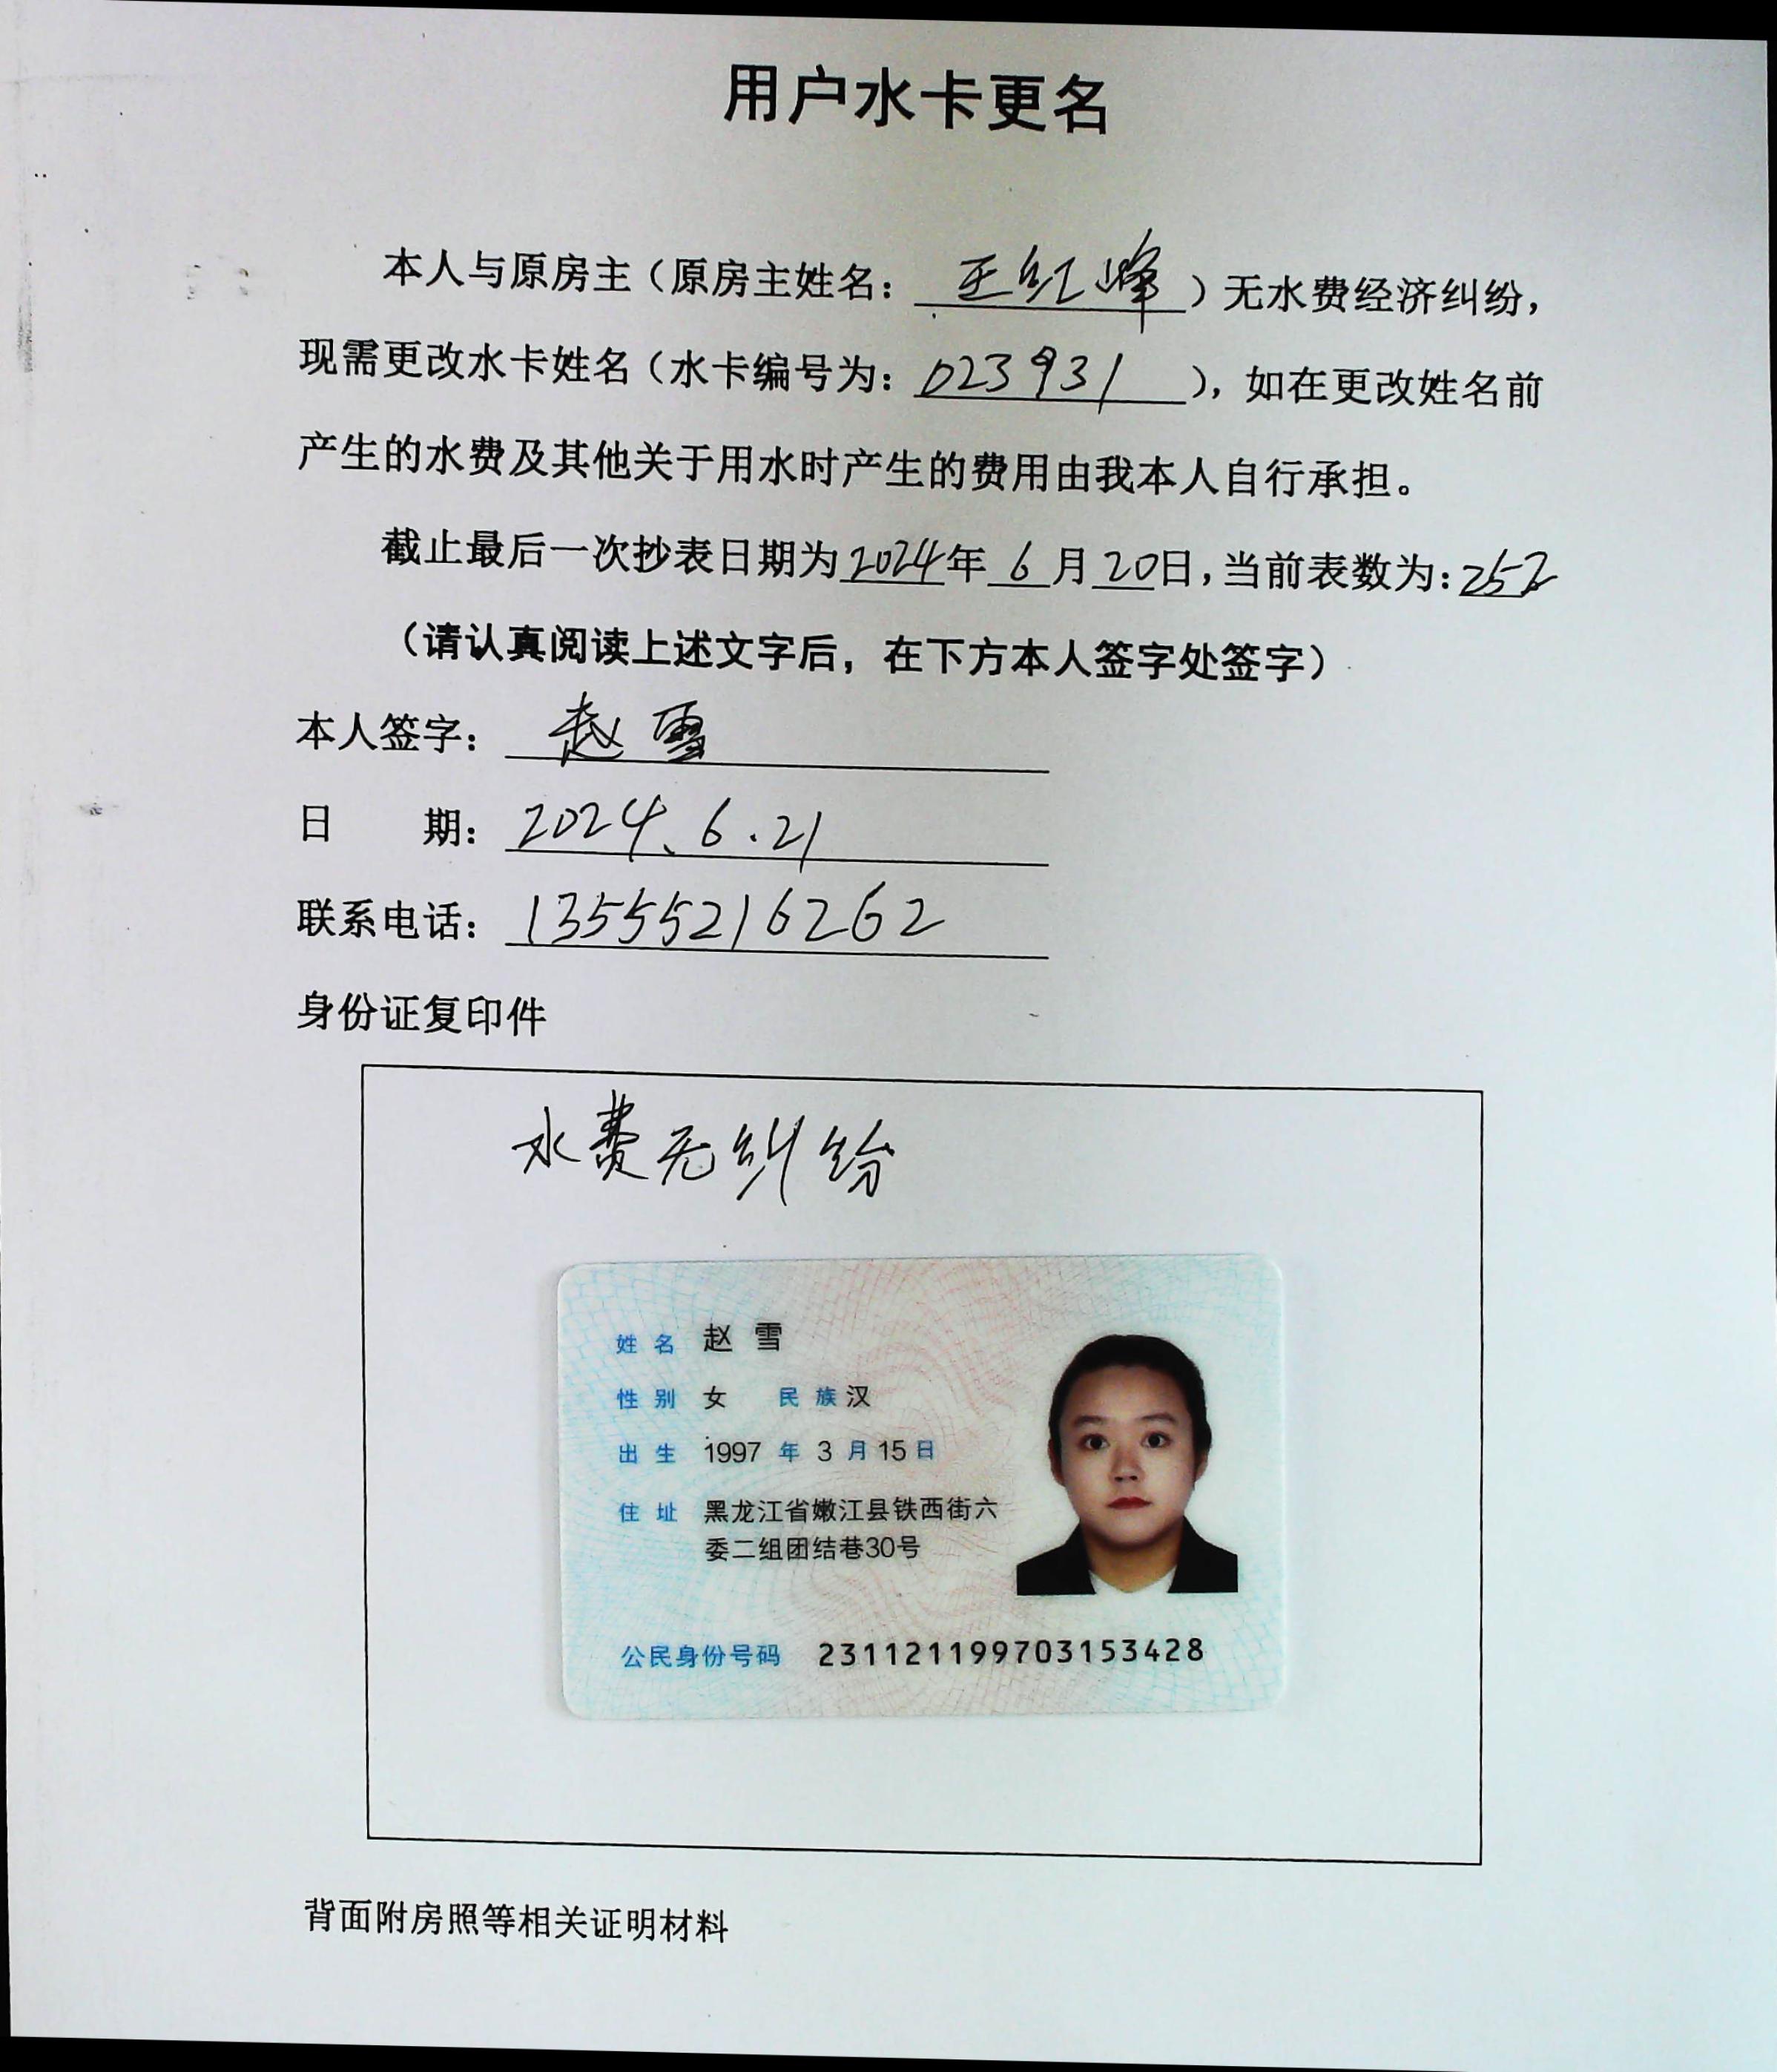 用户水卡更名
本人与原房主（原房主姓名：王红峰）无水费经济纠纷，
现需更改水卡姓名（水卡编号为：023931），如在更改姓名前
产生的水费及其他关于用水时产生的费用由我本人自行承担。
截止最后一次抄表日期为2024年6月20日，当前表数为：252
（请认真阅读上述文字后，在下方本人签字处签字）
本人签字：赵雪
日 期：2024、6.21
联系电话：13555216262
身份证复印件
水费无纠纷
姓名 赵雪
性别 女 民族 汉
出生 1997 年 3 月 15 日
住址 黑龙江省嫩江县铁西街六
委二组团结巷30号
公民身份号码 231121199703153428
背面附房照等相关证明材料